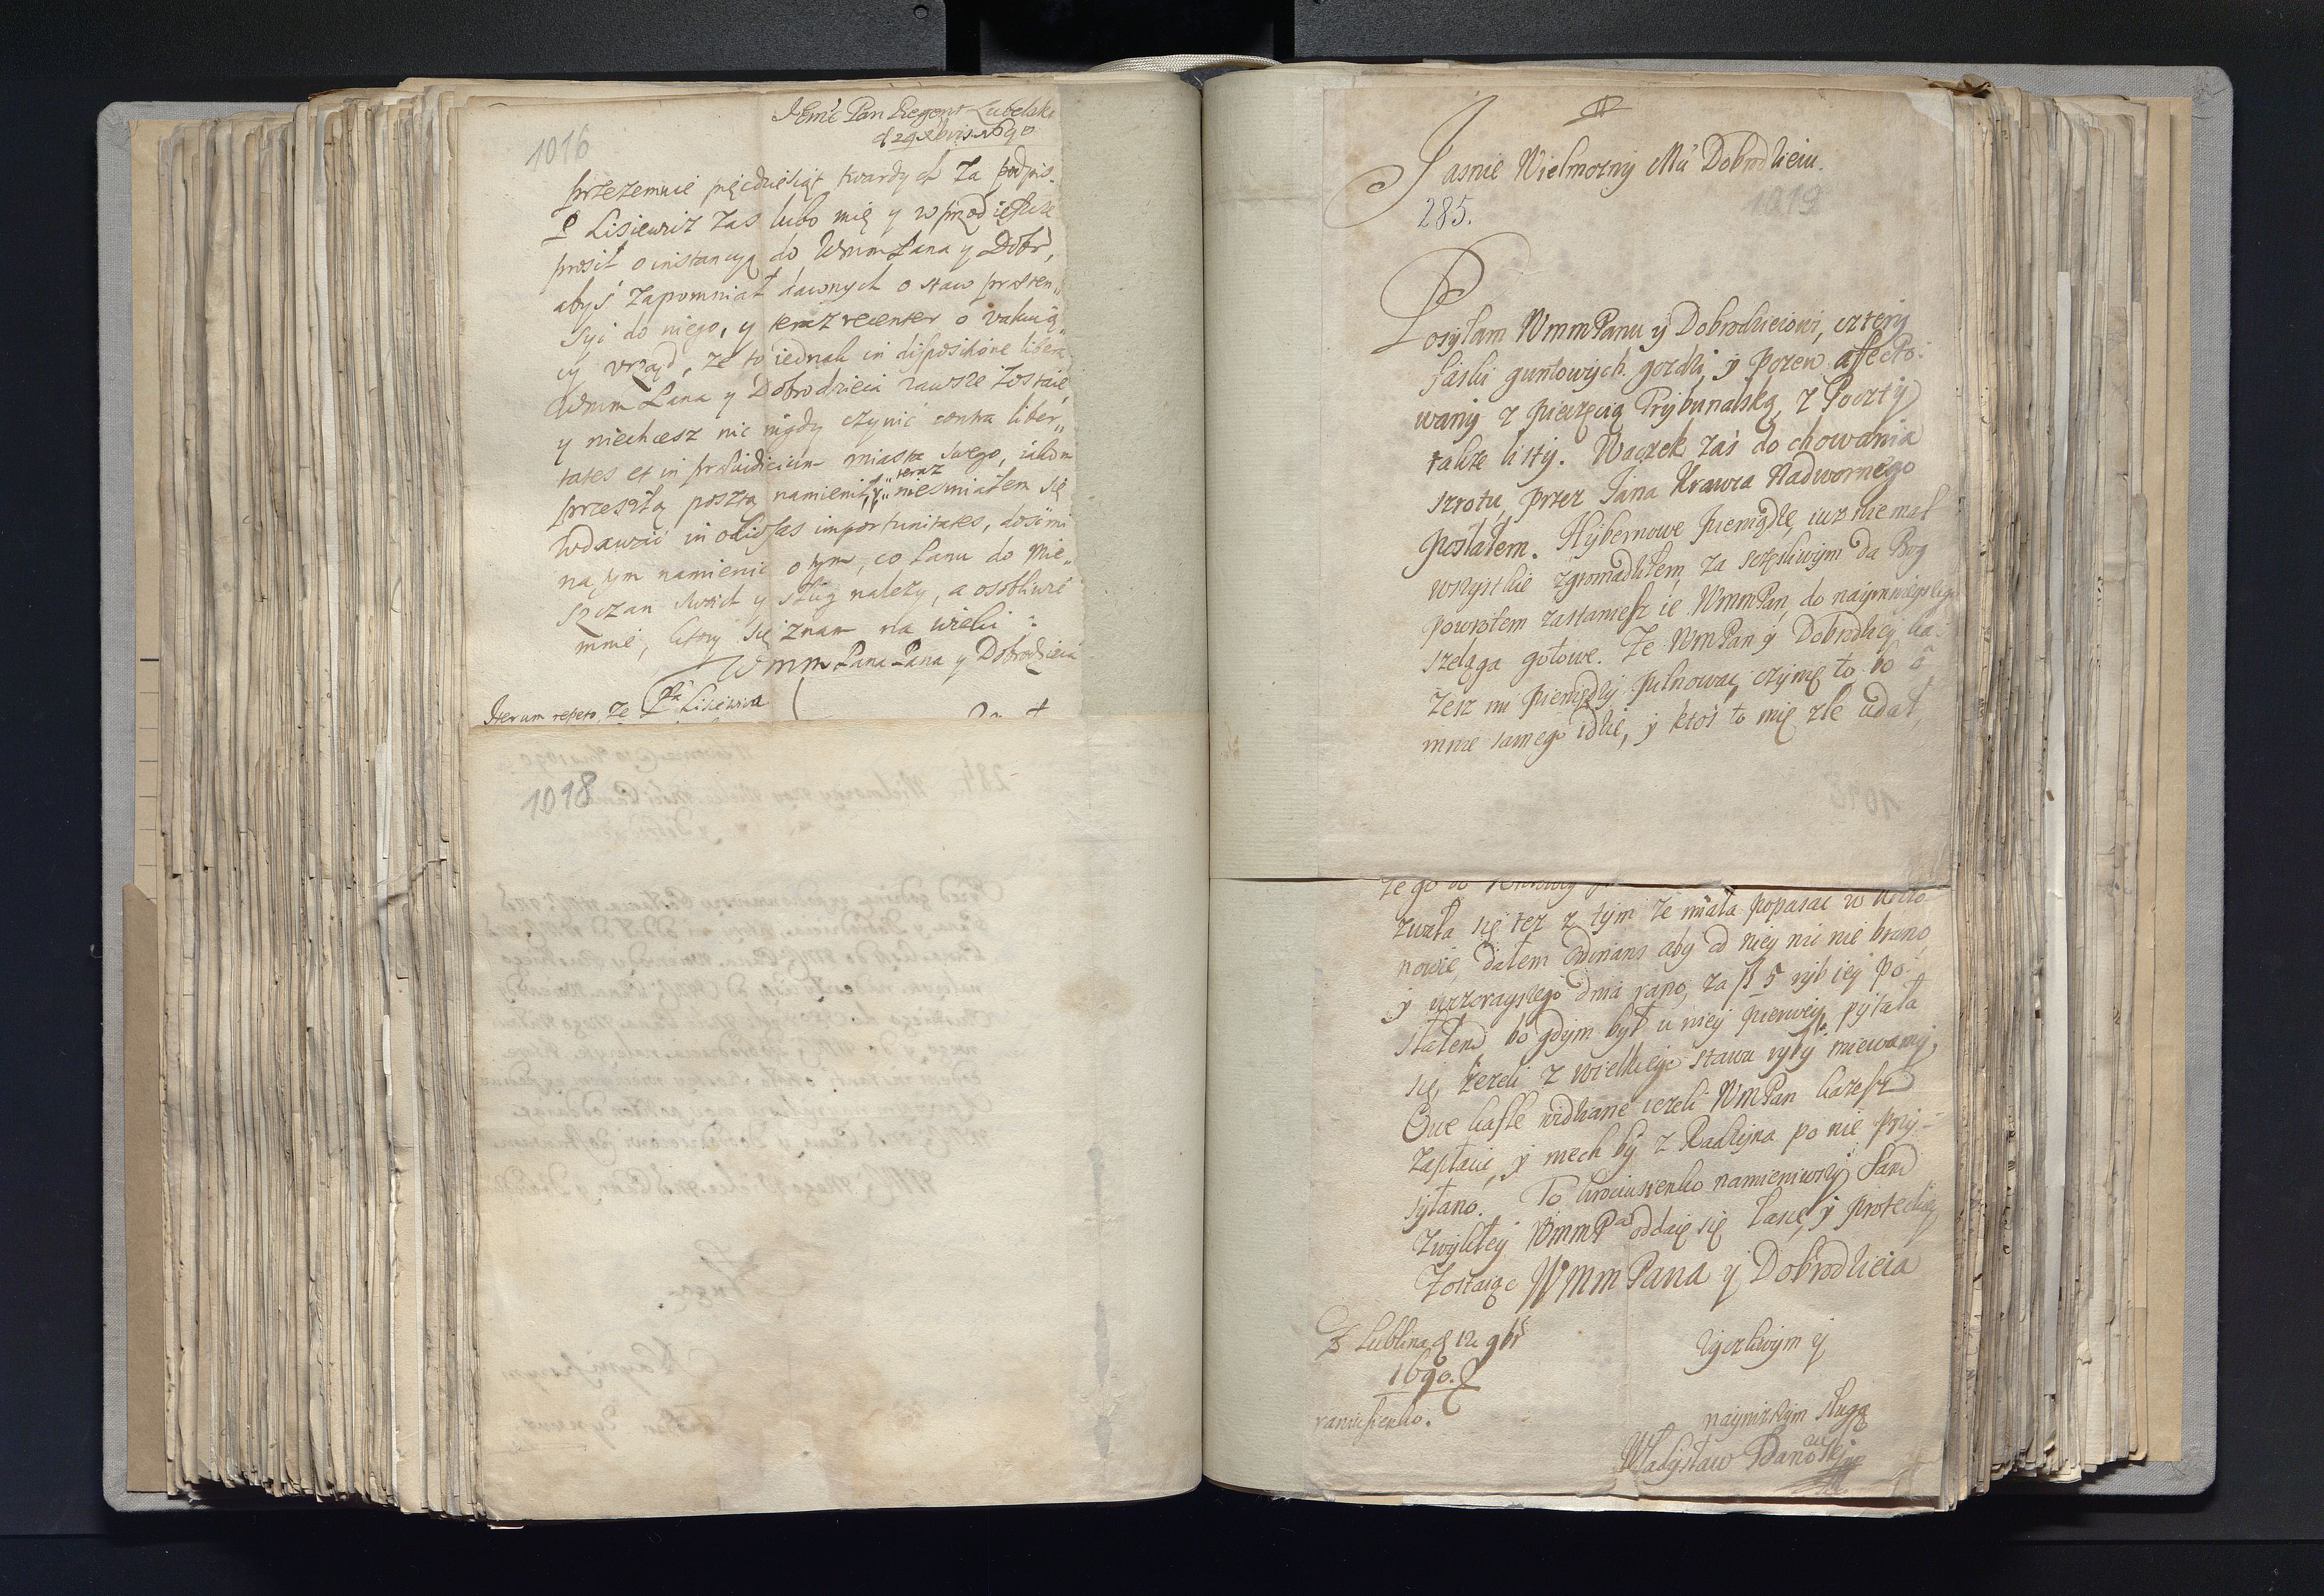 1016
JEmć Pan Regent Lubelski
d 29 Xbris 1690
przezemnie pięcdziesiąt twardych za podpis.
P Lisiewicz zas lubo mię y wprzod ieszcze
prosił o instancyą do Wmm Pana y Dobr,
abyś zapomniał dawnych o staw preten„
syi do niego, y teraz recenter o vakuią„
cy vrząd, że to iednak in dispositione libera
Wmm Pana y Dobrodzieia zawsze zostaie,
y niechcesz nic nigdy czynić contra liber„
tates et in praeiudicium miasta swego, iakom
przeszłą pocztą namienił, y „teraz„ niesmiałem się
wdawać in odiosas importunitates, dosć mi
na tym namienić o tym, co Panu do mie„
szczan swoich y sług należy, a osobliwie
mnie, ktory się znam na wieki:
Wmm Pana Pana y Dobrodzieia
Iterum repeto, że Pa Lisiewicza
1018
Jasnie Wielmozny Mći Dobrodzieiu.
285.
1019
Posyłam WmmPanu y Dobrodzieiowi, cztery
faski guntowych gozdzi, y pozew affecto-
wany z pieczęcią Trybunalską, z Poczty
takze listy. Waczek zaś do chowania
szrotu, przez Jana Krawca Nadwornego
posłałem. Hybernowe pieniądze, iuz nie mal
wszystkie zgromadziłem, za szczęsliwym da Bog
powrotem zastaniesz ie WmmPan, do naymnieyszego
szeląga gotowe. Ze WmPan y Dobrodziey ka-
zesz mi pieniędzy pilnować, czynię to, bo o
mnie samego idzie, y ktoś to mię zle udał,
zwała się tez z tym ze miała popasac w
nowie, dałem Ordinans aby od niey nic nie brano
y wczorayszego dnia rano, za fl 5 ryb iey po-
słałem bo gdym był u niey pierwey, pytała
się, iezeli z wielkiego stawu ryby miewamy,
Owe kasle widziane iezeli WmPan kazesz
zapłacić, y niech by z Radzyna po nie przy-
syłano. To krociusienko namieniwszy Sam
zwykłey WmmPa oddaię się łasce, y protectiey
Zostaiąc WmmPana y Dobrodzieia
Z Lublina d 12 9br
1690.
raniusienko.
zyczliwym y
nayniższym sługą
Władysław Danowski